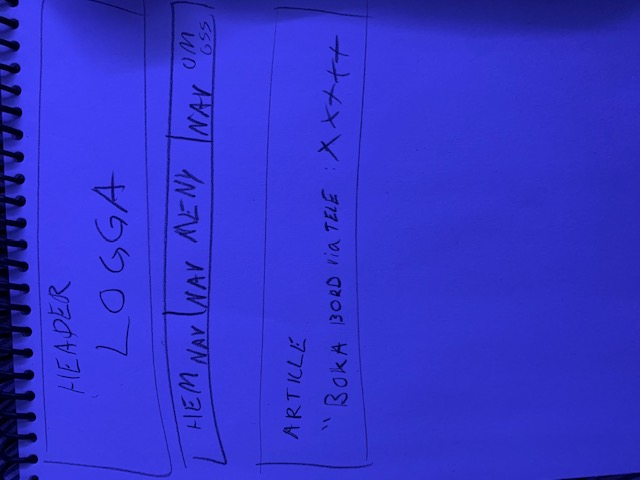 HEADER
LOGGA
HEM NAV NAV MENY NAV OM OSS
ARTICLE
"BOKA BORD via TELE : XX+++